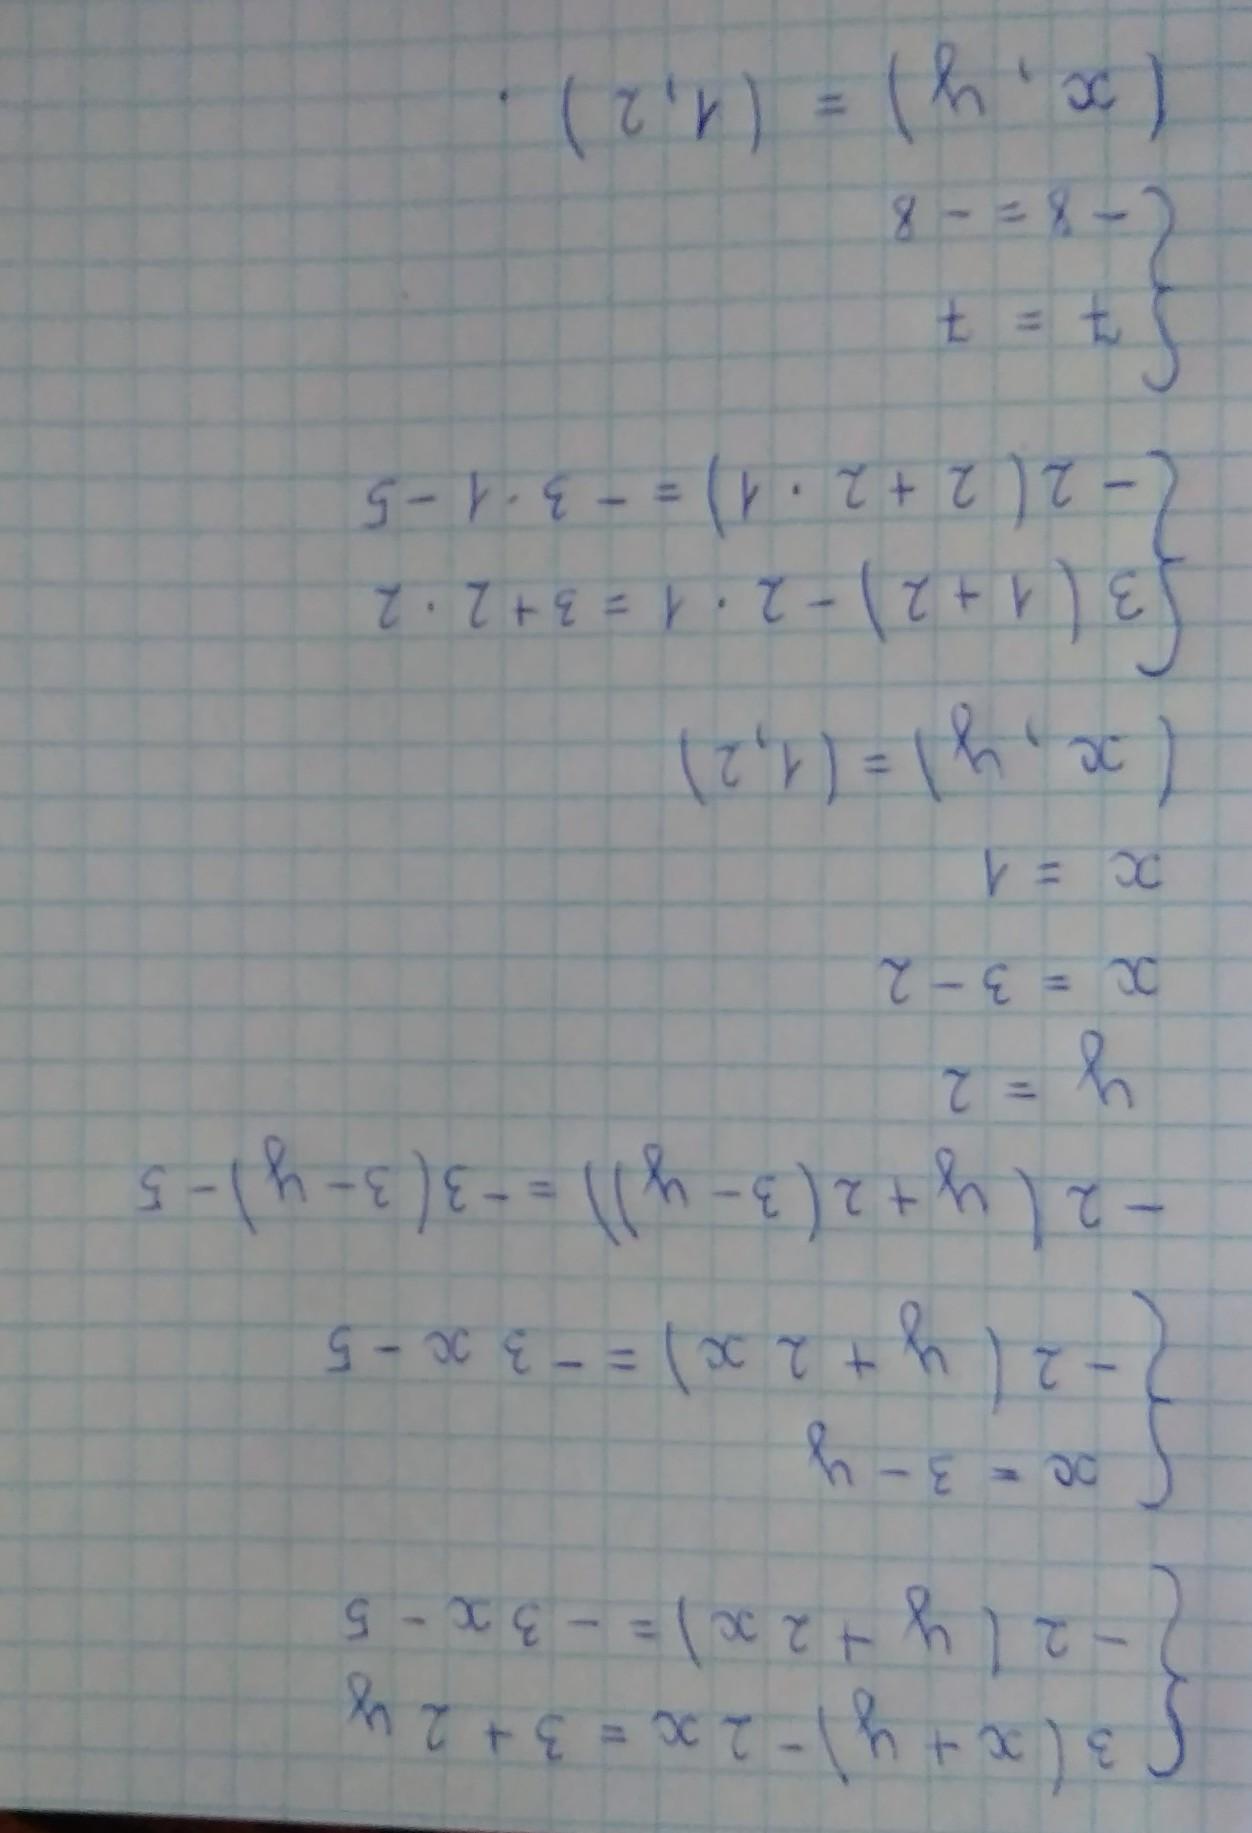 3(x+y)-2x=3+2y
-2(y+2x)=-3x-5
x=3-y
-2(y+2x)=-3x-5
-2(y+2(3-y))=-3(3-y)-5
y=2
x=3-2
x=1
(x,y)=(1,2)
3(1+2)-2·1=3+2·2
-2(2+2·1)=-3·1-5
7=7
-8=-8
(x,y)=(1,2).